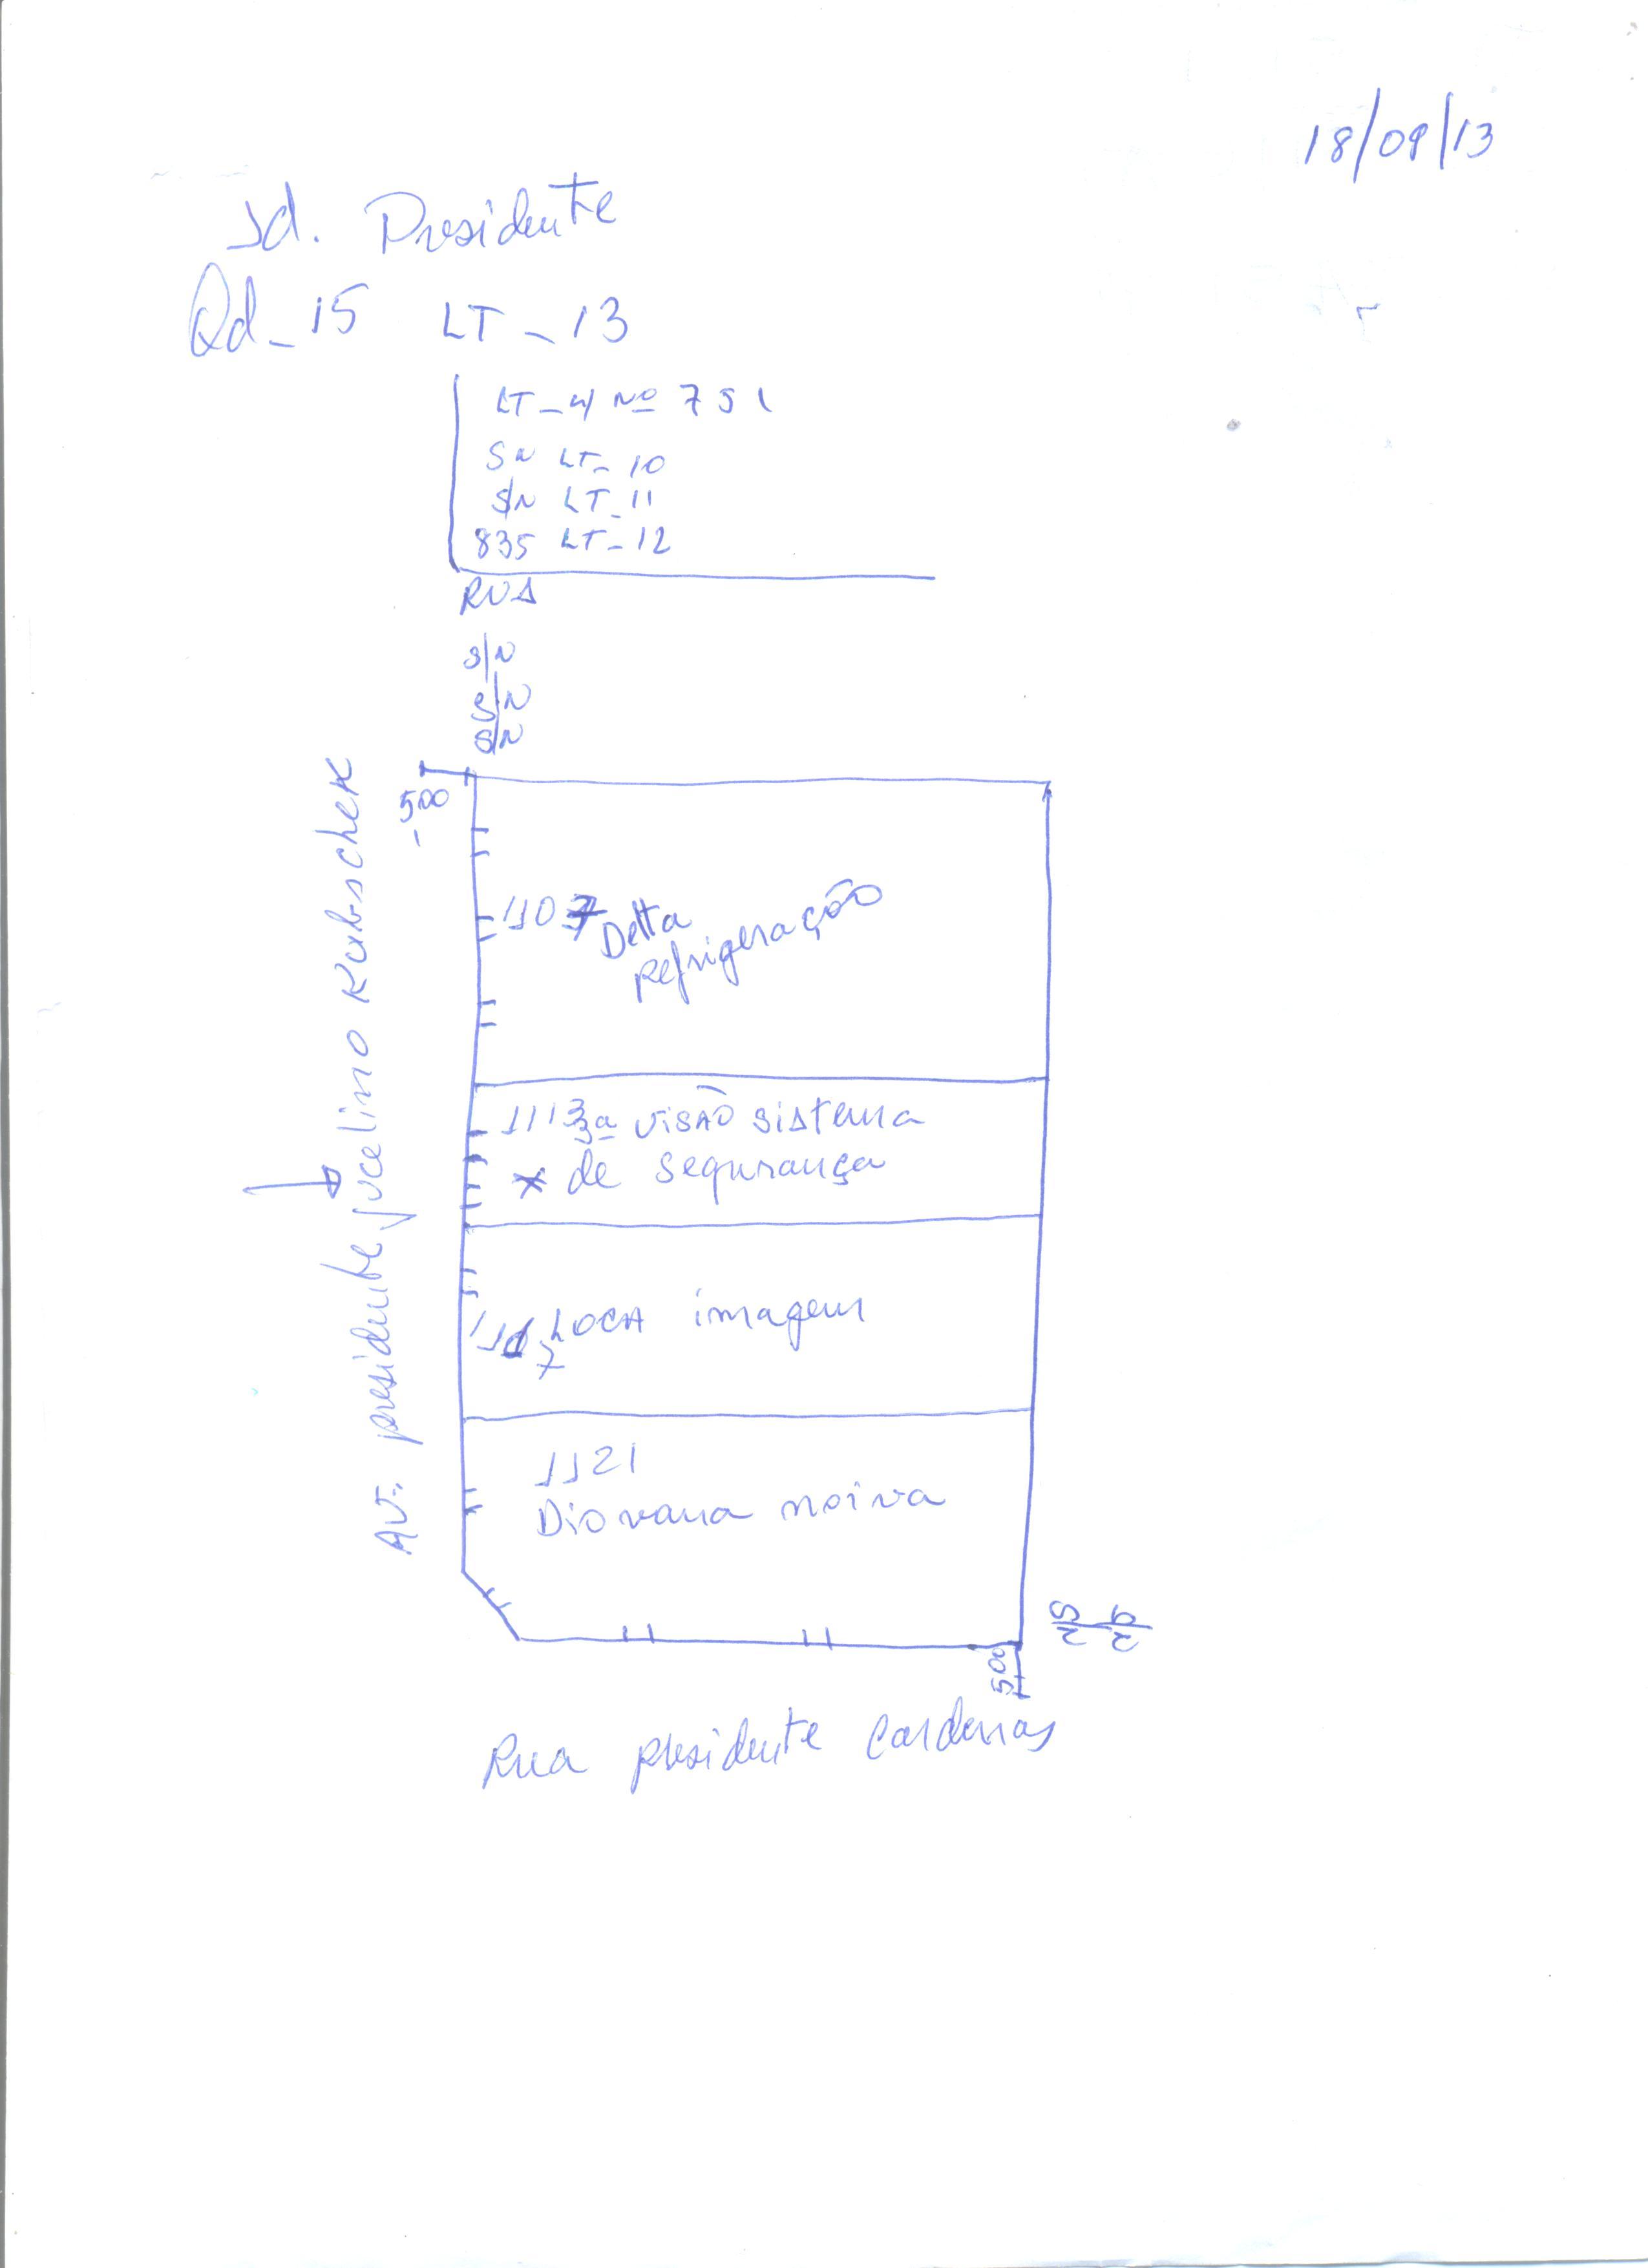 18/09/13
Jd. Presidente
Qd_15 LT_13
LT_4 Nº 751
SN LT_10
S/N LT_11
835 LT_12
RUA
S/N
S/N
S/N
500
1107 Delta
refrigeração
1113 3ª visão sistema
* de segurança
Av. presidente Jucelino Kubschek
1117 LOCA imagem
1121
Diovana noiva
500
Rua presidente Cardenas